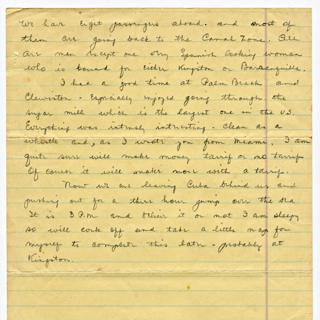 We have eight passengers aboard. and most of
them are going back to the Canal Zone. All
are men except one very Spanish looking woman
who is bound for either Kingston or Barranquilla.
I had a good time at Palm Beach and
Clewiston - Especially enjoyed going through the
sugar mill which is the largest one in the U.S.
Everything was intensely interesting - Clean as a
whistle and, as I wrote you from Miami, I am
quite sure will make money tariff or no tariff.
Of course it will make more with a tariff.
Now we are leaving Cuba behind us and
pushing out for a three hour jump over the sea
It is 3 P.M and believe it or not I am sleepy
so will cork off and take a little nap for
myself to complete this later - probably at
Kingston.